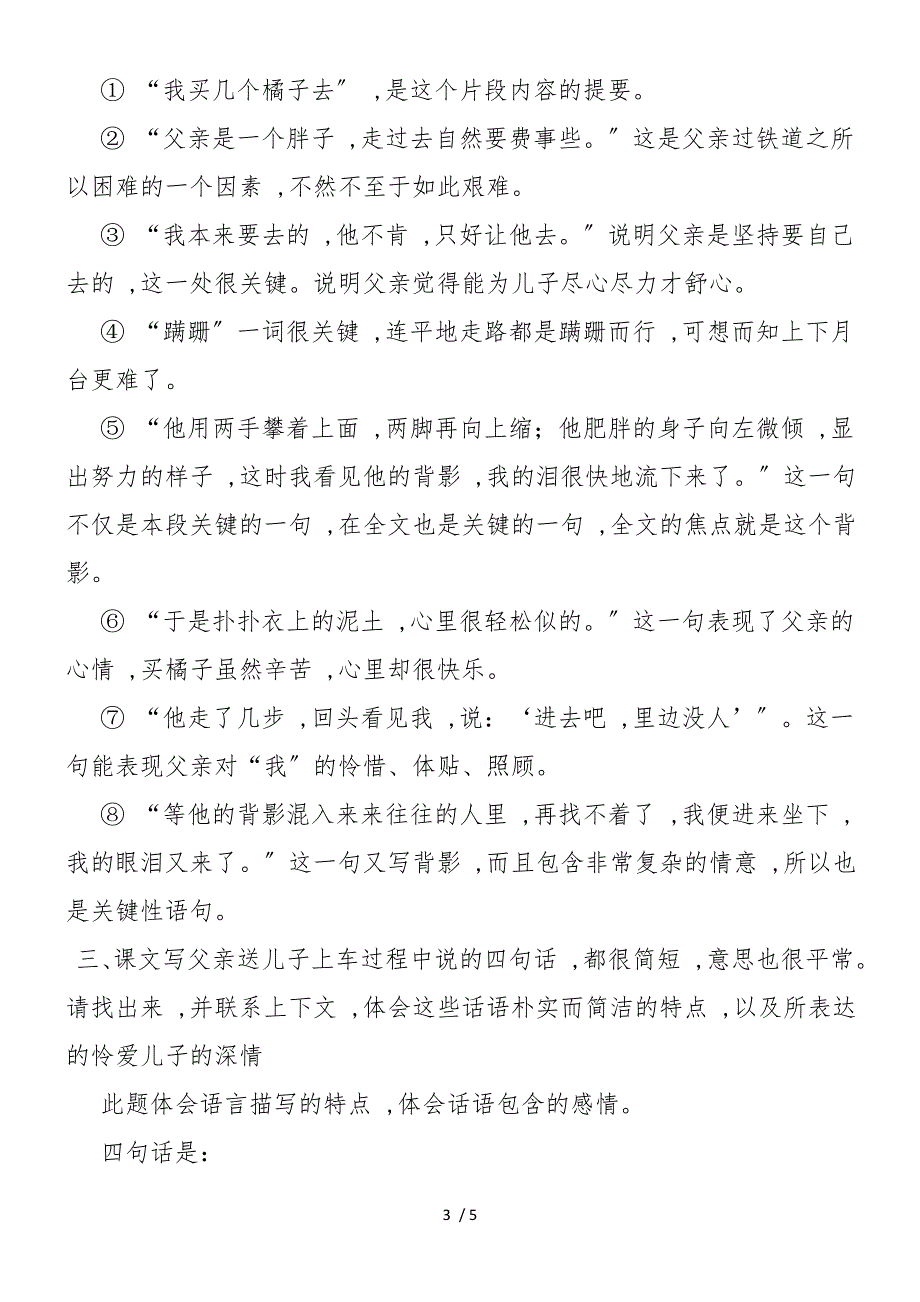 ① “我买几个橘子去〞 ,是这个片段内容的提要。
② “父亲是一个胖子 ,走过去自然要费事些。〞这是父亲过铁道之所
以困难的一个因素 ,不然不至于如此艰难。
③ “我本来要去的 ,他不肯 ,只好让他去。〞说明父亲是坚持要自己
去的 ,这一处很关键。说明父亲觉得能为儿子尽心尽力才舒心。
④ “蹒跚〞一词很关键 ,连平地走路都是蹒跚而行 ,可想而知上下月
台更难了。
⑤ “他用两手攀着上面 ,两脚再向上缩；他肥胖的身子向左微倾 ,显
出努力的样子 ,这时我看见他的背影 ,我的泪很快地流下来了。〞这一句
不仅是本段关键的一句 ,在全文也是关键的一句 ,全文的焦点就是这个背
影。
⑥ “于是扑扑衣上的泥土 ,心里很轻松似的。〞这一句表现了父亲的
心情 ,买橘子虽然辛苦 ,心里却很快乐。
⑦ “他走了几步 ,回头看见我 ,说：‘进去吧 ,里边没人’〞。这一
句能表现父亲对“我〞的怜惜、体贴、照顾。
⑧ “等他的背影混入来来往往的人里 ,再找不着了 ,我便进来坐下 ,
我的眼泪又来了。〞这一句又写背影 ,而且包含非常复杂的情意 ,所以也
是关键性语句。
三、课文写父亲送儿子上车过程中说的四句话 ,都很简短 ,意思也很平常。
请找出来 ,并联系上下文 ,体会这些话语朴实而简洁的特点 ,以及所表达
的怜爱儿子的深情
此题体会语言描写的特点 ,体会话语包含的感情。
四句话是：
3 / 5